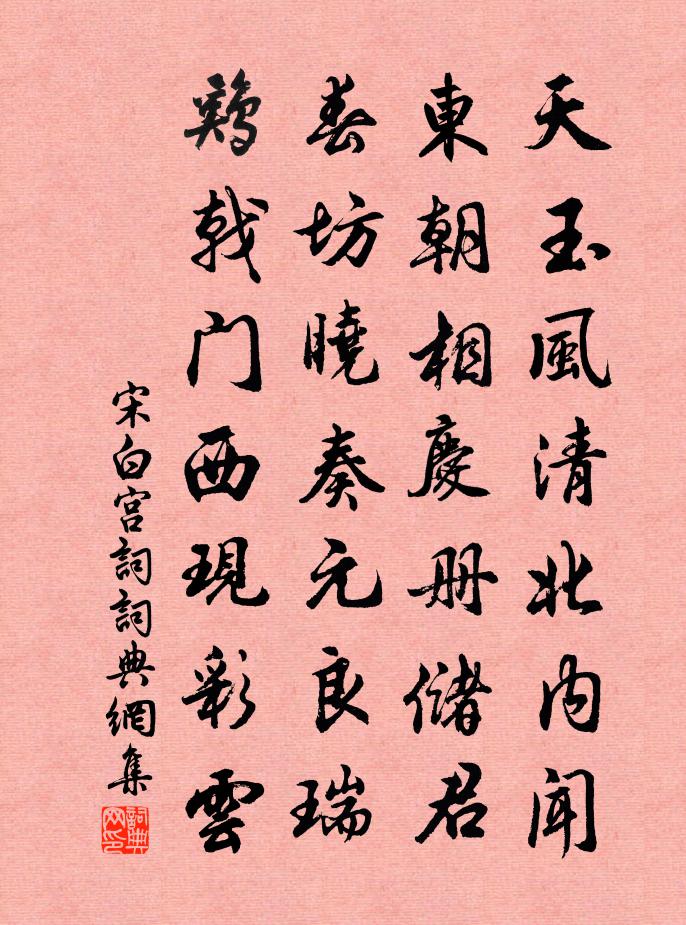 天玉風清北内闻
東朝相慶册儲君
春坊曉奏元良瑞
鷄戟门西現彩雲
宋白宫詞詞典網集
詞典网印